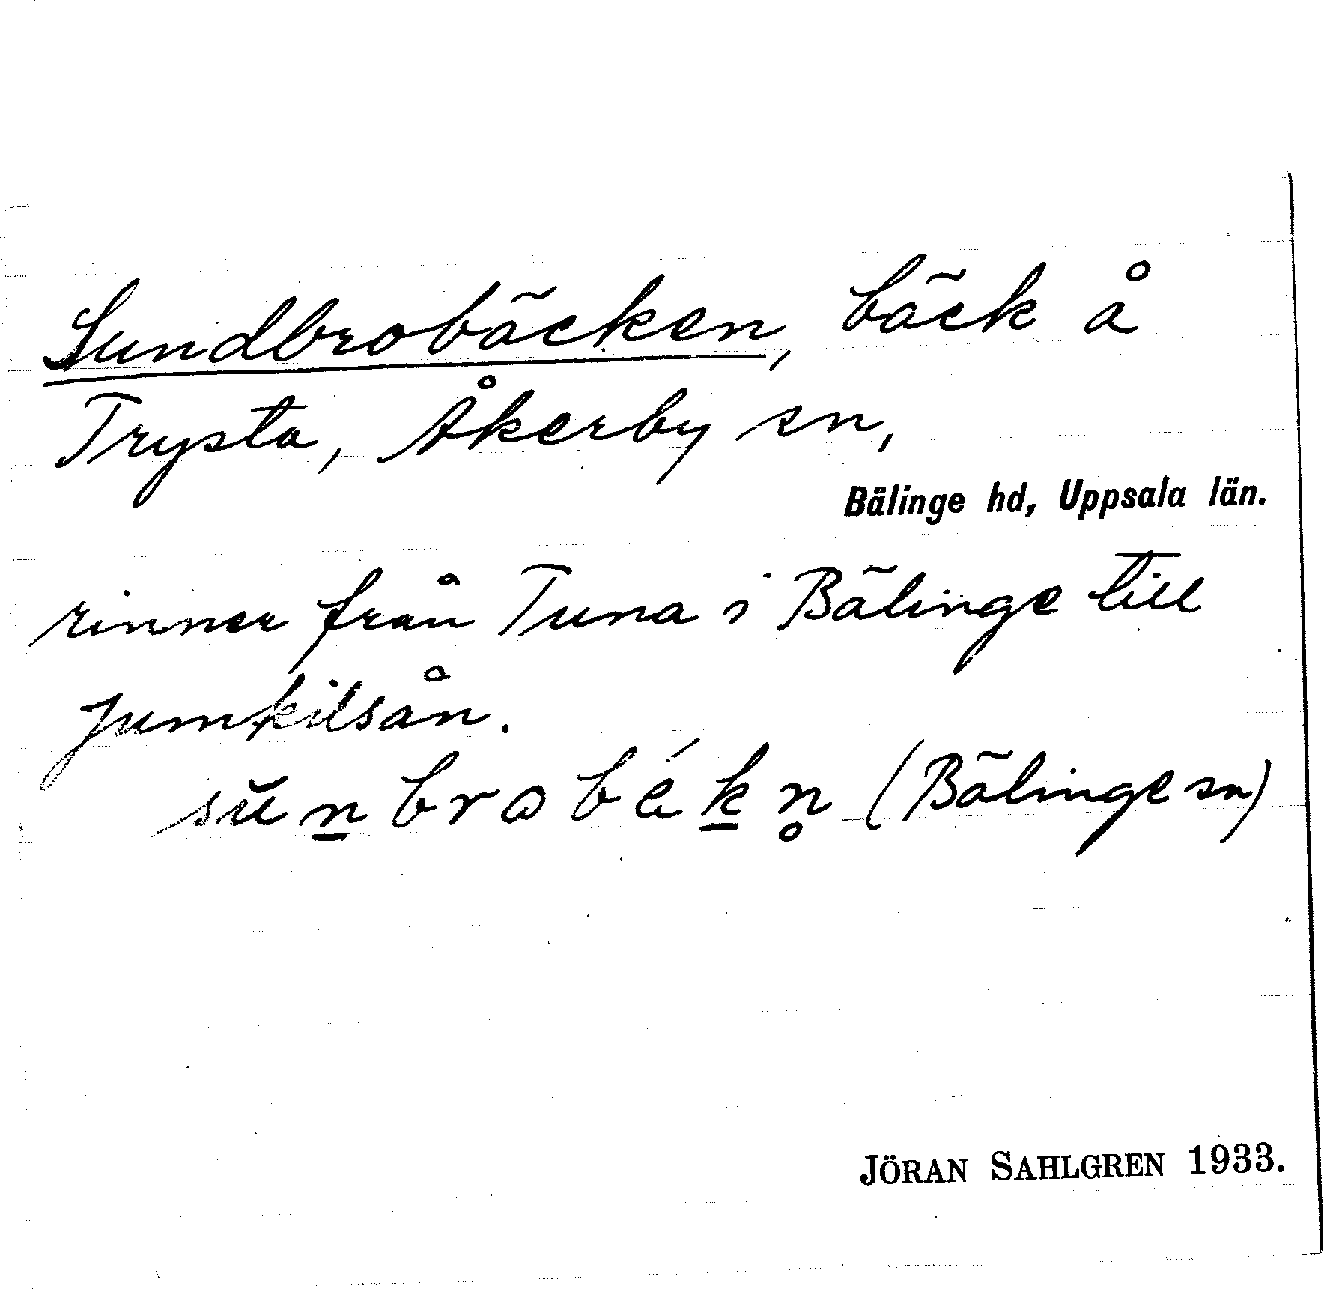 Sundbrobäcken, bäck å
Trysta, Åkerby sn,
Bälinge hd, Uppsala län.
rinner från Tuna i Bälinge till
Jumkilsån.
sŭn̲brobék̲n̥ (Bälinge sn)
JÖRAN SAHLGREN 1933.